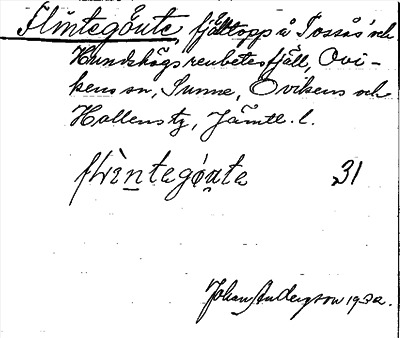 Flintegånte, fjälltopp å Tossås' och
Hundshögs renbetesfjäll, Ovi-
kens sn, Sunne, Ovikens och
Hallens tg, Jämtl. l.
flintegònte 31
Johan Anderson 1932.